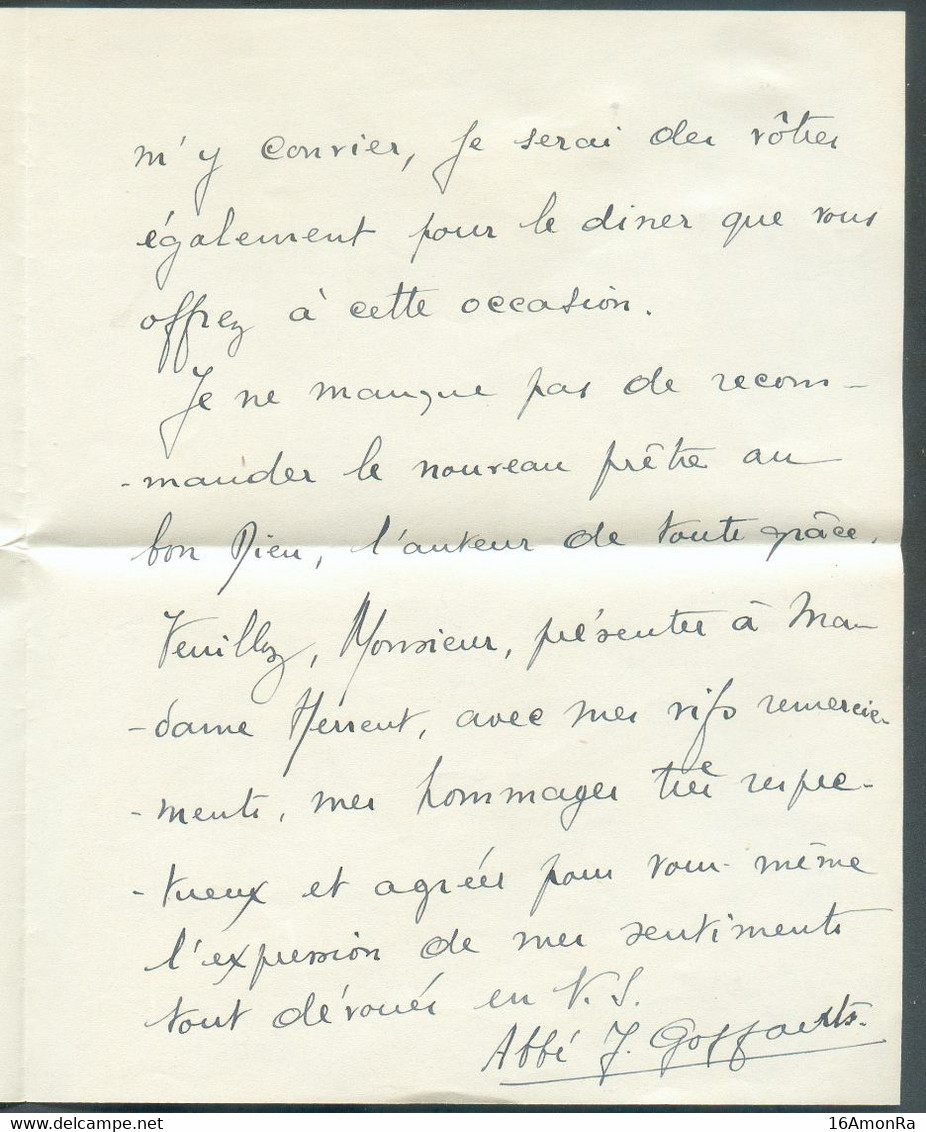 m'y convier, je serai des vôtres
également pour le diner que vous
offrez à cette occasion.
Je ne manque pas de recom-
-mander le nouveau prêtre au
bon Dieu, l'auteur de toute grâce.
Veuillez, Monsieur, présenter à Ma-
-dame Herrent, avec mes vifs remercie-
-ments, mes hommages très respec-
-tueux et agréer pour vous-même
l'expression de mes sentiments
tout dévoués en N. S.
Abbé J. Goffaerts.
16AmonRa